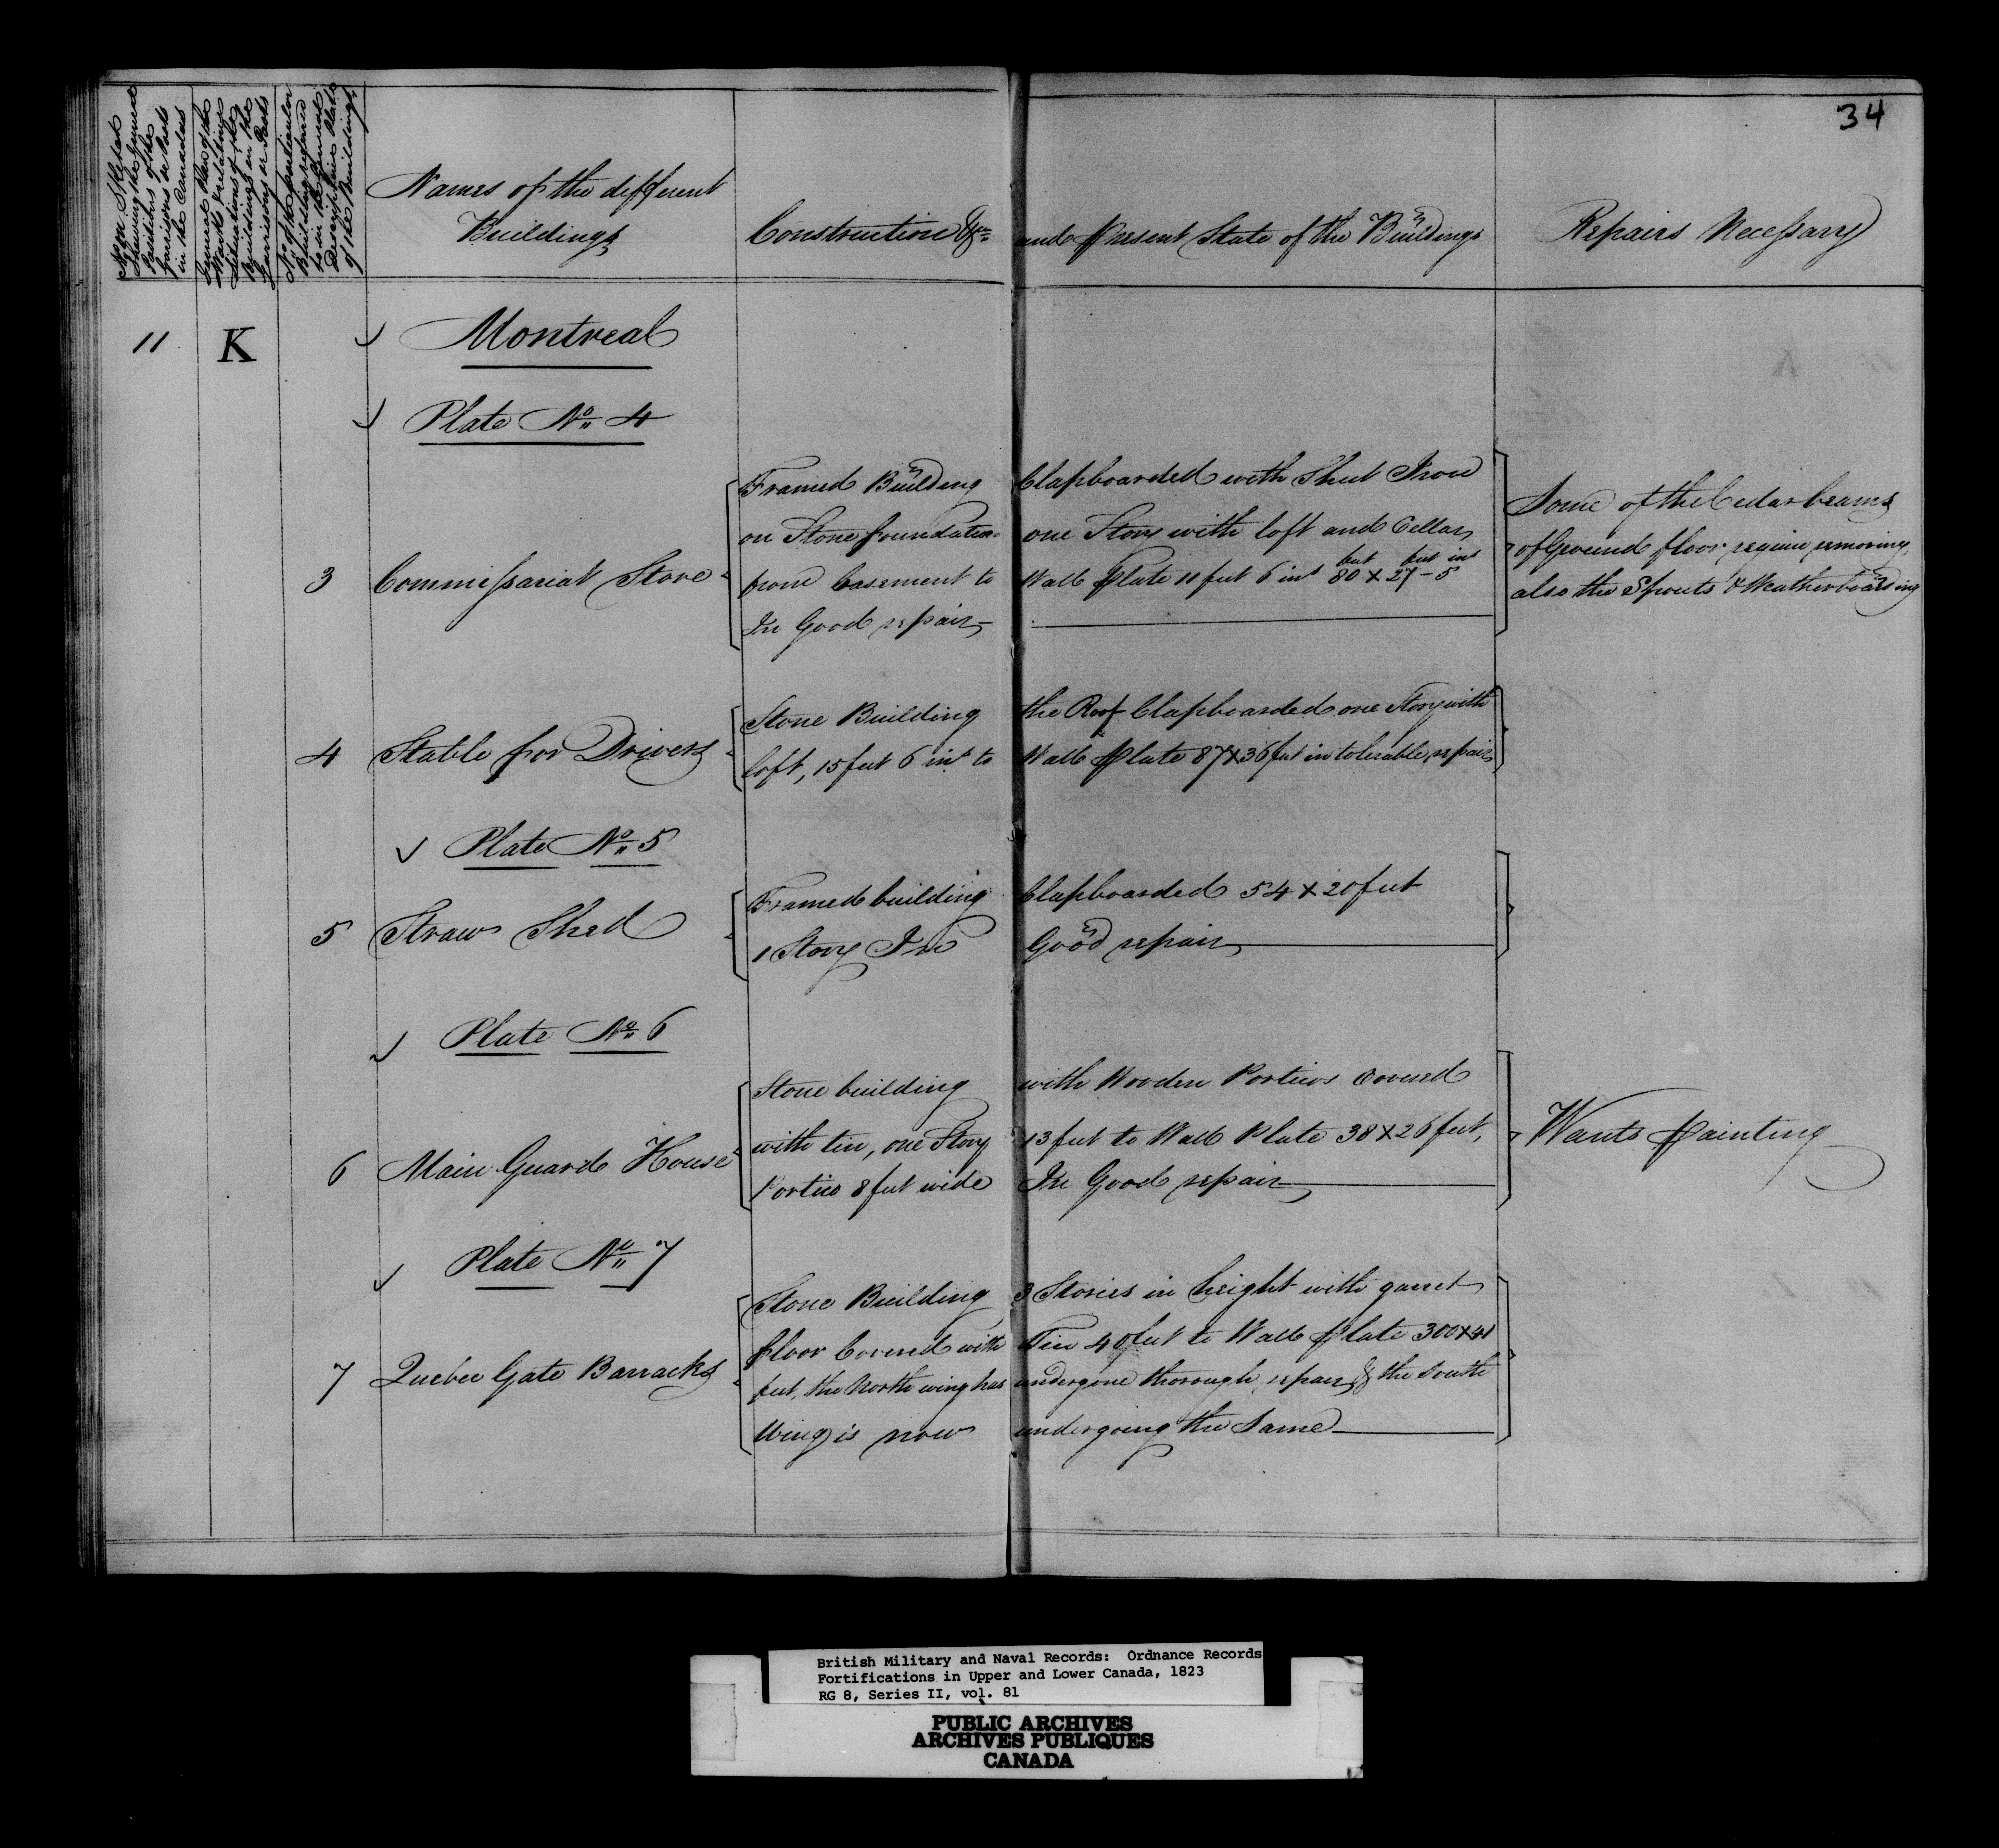 34
No. on Sketch
Shewing the General
Position of the
Garrisons or Posts
in the Canadas
General Plan of the
Works & relating
Situations of the
Buildings in the
Garrisons or Posts
No. of the particular
Building referred
to in the General
Descriptive Plate
of the Buildings
Names of the different
Buildings
Construction &c
and Present State of the Buildings
Repairs Necessary
11 K Montreal
Plate No. 4
3 Commissariat Store
Framed Building Clapboarded with Sheet Iron
on Stone foundation one Story with loft and Cellar,
from basement to Wall Plate 11 feet 6 ins 80 feet X 27 feet - 5 ins
In Good repair
Some of the Cedar beams
of Ground floor require removing,
also the Spouts & Weatherboarding
4 Stable for Drivers
Stone Building the Roof Clapboarded one Story with
loft, 15 feet 6 ins to Wall Plate 87 X 36 feet in tolerable repair
Plate No. 5
5 Straw Shed
Framed building Clapboarded 54 X 20 feet
1 Story In Good repair
Plate No. 6
6 Main Guard House
Stone building with Wooden Portico Covered
with tin, one Story 13 feet to Wall Plate 38 X 26 feet,
Portico 8 feet wide In Good repair
Wants Painting
Plate No. 7
7 Quebec Gate Barracks
Stone Building 3 Stories in height with garret
floor Covered with Tin 40 feet to Wall Plate 300 X 41
feet, the North wing has undergone thorough repair & the South
Wing is now undergoing the Same
British Military and Naval Records: Ordnance Records
Fortifications in Upper and Lower Canada, 1823
RG 8, Series II, vol. 81
PUBLIC ARCHIVES
ARCHIVES PUBLIQUES
CANADA